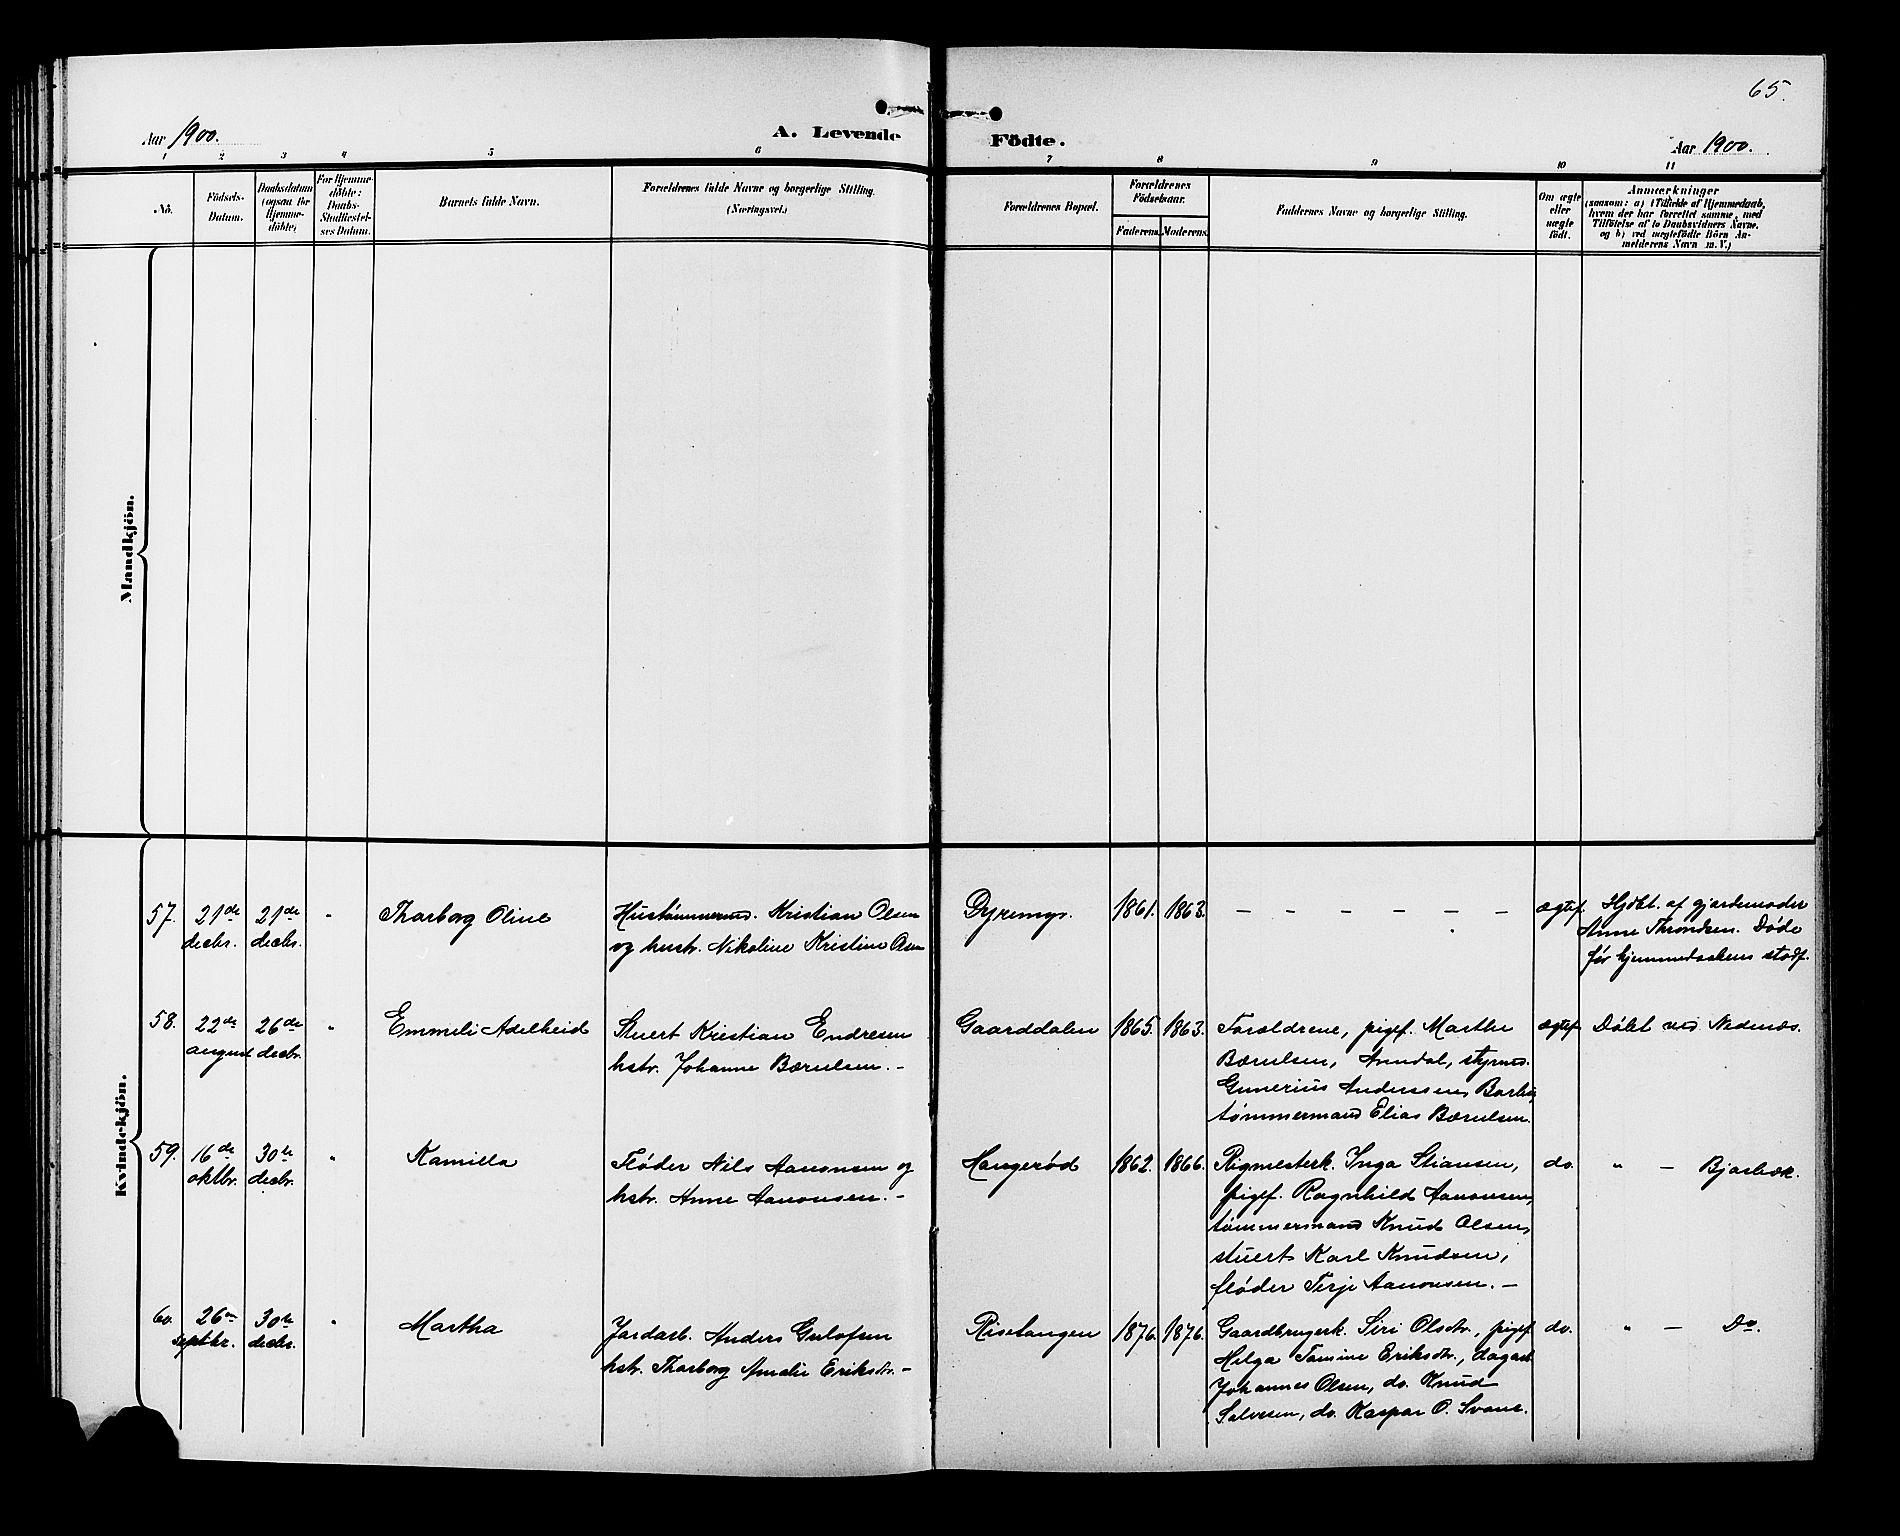 65.
Aar 1900. A. Levende Födte. Aar 1900.
1 2 3 4 5 6 7 8 9 10 11
No. Födsels-Datum. Daabsdatum (ogsaa for Hjemme-döbte) For Hjemme-döbte: Daabs-Stadfæstel-ses Datum. Barnets fulde Navn. Forældrenes fulde Navne og borgerlige Stilling. (Næringsvei.) Forældrenes Bopæl. Forældrenes Födselsaar. Faderens. Moderens. Faddernes Navne og borgerlige Stilling. Om ægte eller uægte födt.
Anmærkninger
(saasom: a) i Tilfælde af Hjemmedaab,
hvem der har forrettet samme, med
Tilföielse af to Daabsvidners Navne.
og b) ved uægtefödte Börn An-
melderens Navn m. V.)
Mandkjön.
Kvindekjön.
57. 21de decbr. 21de decbr. " Tharborg Oline
Hustømmermd. Kristian Olsen
og hustr. Nikoline Kristine Olsen
Dyremyr. 1861. 1863. – – – – – – – ægtef.
Hjdbt. af gjordemoder
Anne Throndsen. Døde
før hjemmedaabens stadf.
58. 22de august 26de decbr. " Emmeli Adelheid
Stuert Kristian Endresen
hstr. Johanne Bærulsen. –
Gaarddalen 1865. 1863.
Forældrene, pigef. Marthe
Bærulsen, Arendal, styrmd.
Gunerius Anderssen, Barbu
tømmermand Elias Bærulsen.
ægtef. Døbt ved Nedenæs.
59. 16de oktbr. 30te decbr. " Kamilla
Fløder Nils Aanonsen og
hstr. Anne Aanonsen. –
Haugerød 1862. 1866.
Rigmesterk. Inga Stiansen,
pigef. Ragnhild Aanonsen,
tømmermand Knud Olsen,
stuert Karl Knudsen,
fløder Terje Aanonsen. –
do. " – Bjorbæk.
60. 26de septbr. 30te decbr. " Martha
Jordarb. Anders Gulofsen
hstr. Tharborg Amalie Eriksdtr. –
Risetangen 1876. 1876.
Gaardbrugerk. Siri Olsdtr., pigef.
Helga Tomine Eriksdtr., dagarb.
Johannes Olsen, do. Knud
Salvesen, do. Kaspar O. Svane.
do. " – Do.